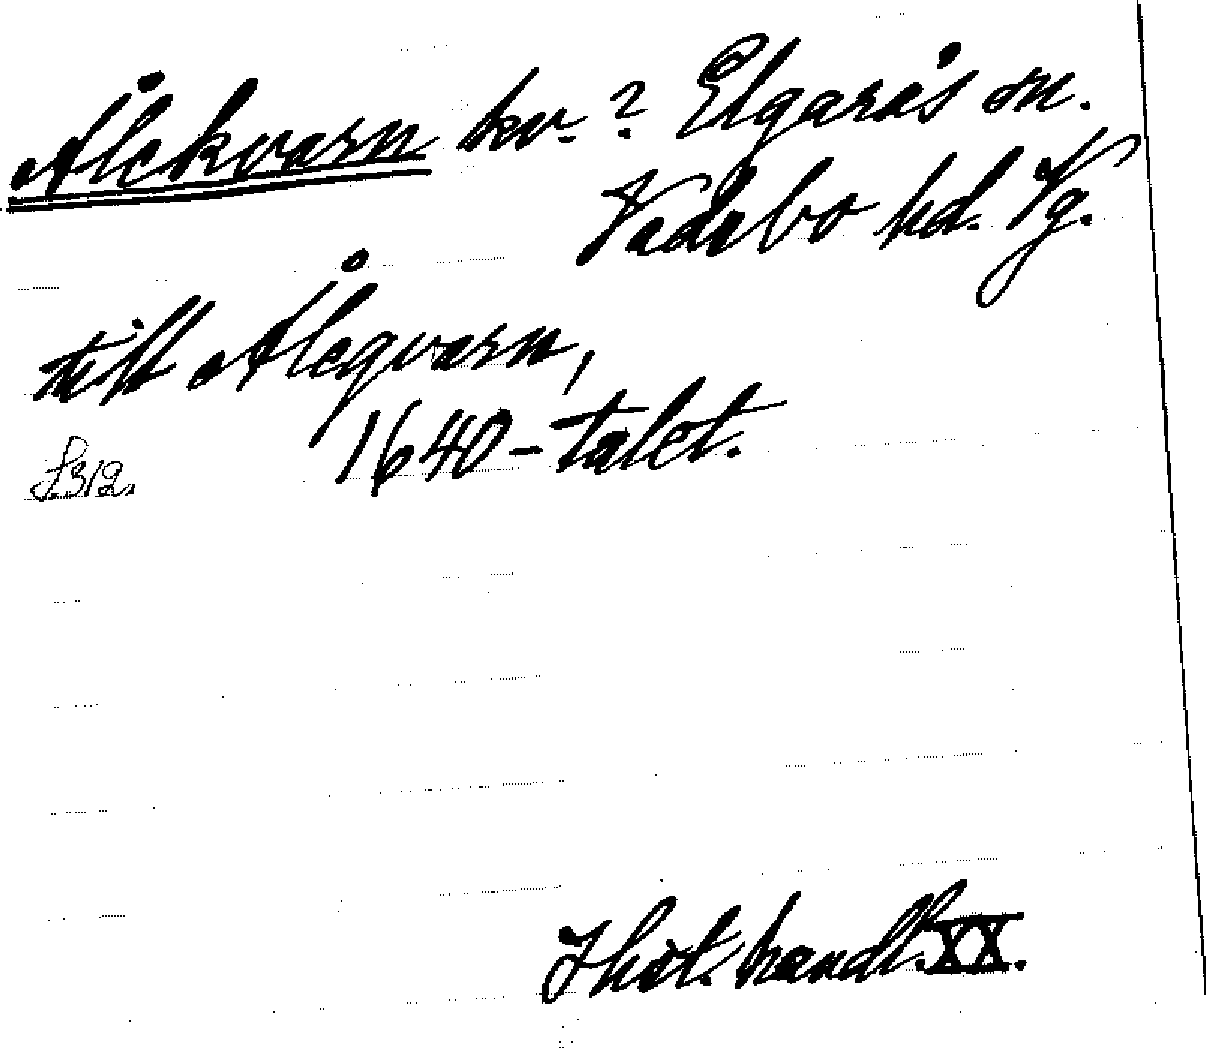 Ålekvarn kv. ? Elgarås sn.
Vadsbo hd. Vg.
till Åleqvarn,
1640-talet.
f. 312.
Hist. handl. XX.